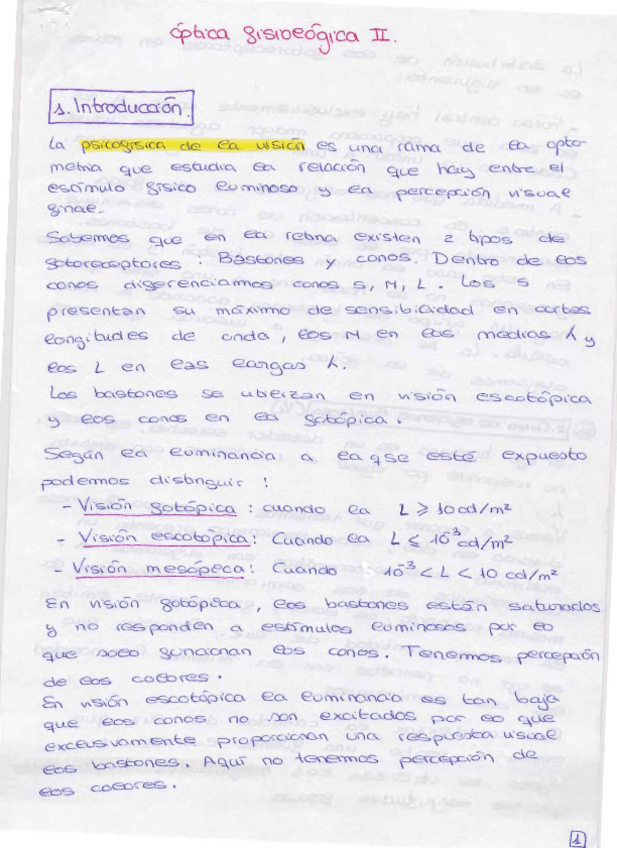 óptica fisiológica II.
1. Introducción.
La psicofísica de la visión es una rama de la opto-
metria que estudia la relación que hay entre el
estímulo físico luminoso y la percepción visual
final.
Sabemos que en la retina existen 2 tipos de
fotoreceptores : Bastones y conos. Dentro de los
conos diferenciamos conos S, M, L. Los S
presentan su máximo de sensibilidad en cortas
longitudes de onda, los M en las medias λ y
los L en las largas λ.
Los bastones se utilizan en visión escotópica
y los conos en la fotópica.
Según la luminancia a la qse esté expuesto
podemos distinguir :
- Visión fotópica : cuando la L ≥ 10 cd/m²
- Visión escotópica : Cuando la L ≤ 10⁻³ cd/m²
- Visión mesópica : Cuando 10⁻³ < L < 10 cd/m²
En visión fotópica, los bastones están saturados
y no responden a estímulos luminosos por lo
que solo funcionan los conos. Tenemos percepción
de los colores.
En visión escotópica la luminancia es tan baja
que los conos no son excitados por lo que
exclusivamente proporcionan una respuesta visual
los bastones. Aquí no tenemos percepción de
los colores.
1